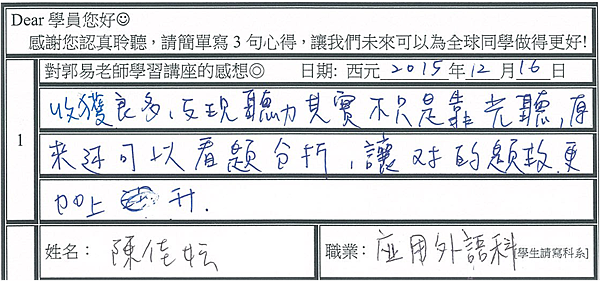 Dear 學員您好☺
感謝您認真聆聽，請簡單寫 3 句心得，讓我們未來可以為全球同學做得更好!
對郭易老師學習講座的感想◎ 日期: 西元 2015 年 12 月 16 日
1
收獲良多，发現聽力其實不只是靠先聽，原
來还可以看題分析，讓对的題数更
加上升.
姓名： 陳佳妘 職業： 应用外語科 [學生請寫科系]